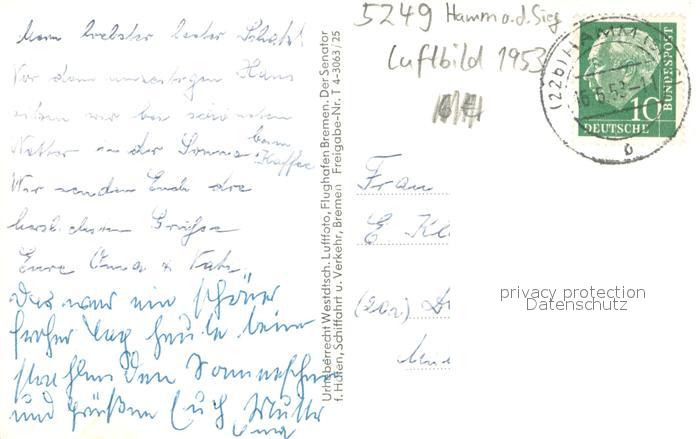 Mein liebster bester Schatz!
Vor dem unserigen Haus
sitzen wir bei schönsten
Wetter in der Sonne beim Kaffee
Wir senden Euch die
herzlichsten Grüße
Eure Oma &
Das war ein schöner
froher Tag heute beim
strahlenden Sonnenschein
und grüßen Euch Mutti
Oma
Urheberrecht Westdtsch. Luftfoto, Flughafen Bremen. Der Senator
f. Häfen, Schiffahrt u. Verkehr, Bremen Freigabe-Nr. T 4-3063/25
5249 Hamm a.d. Sieg
Luftbild 1953
(22b) HAMM (SIEG)
16.6.53
b
10
DEUTSCHE
BUNDESPOST
Frau
E. Kl
privacy protection
Datenschutz